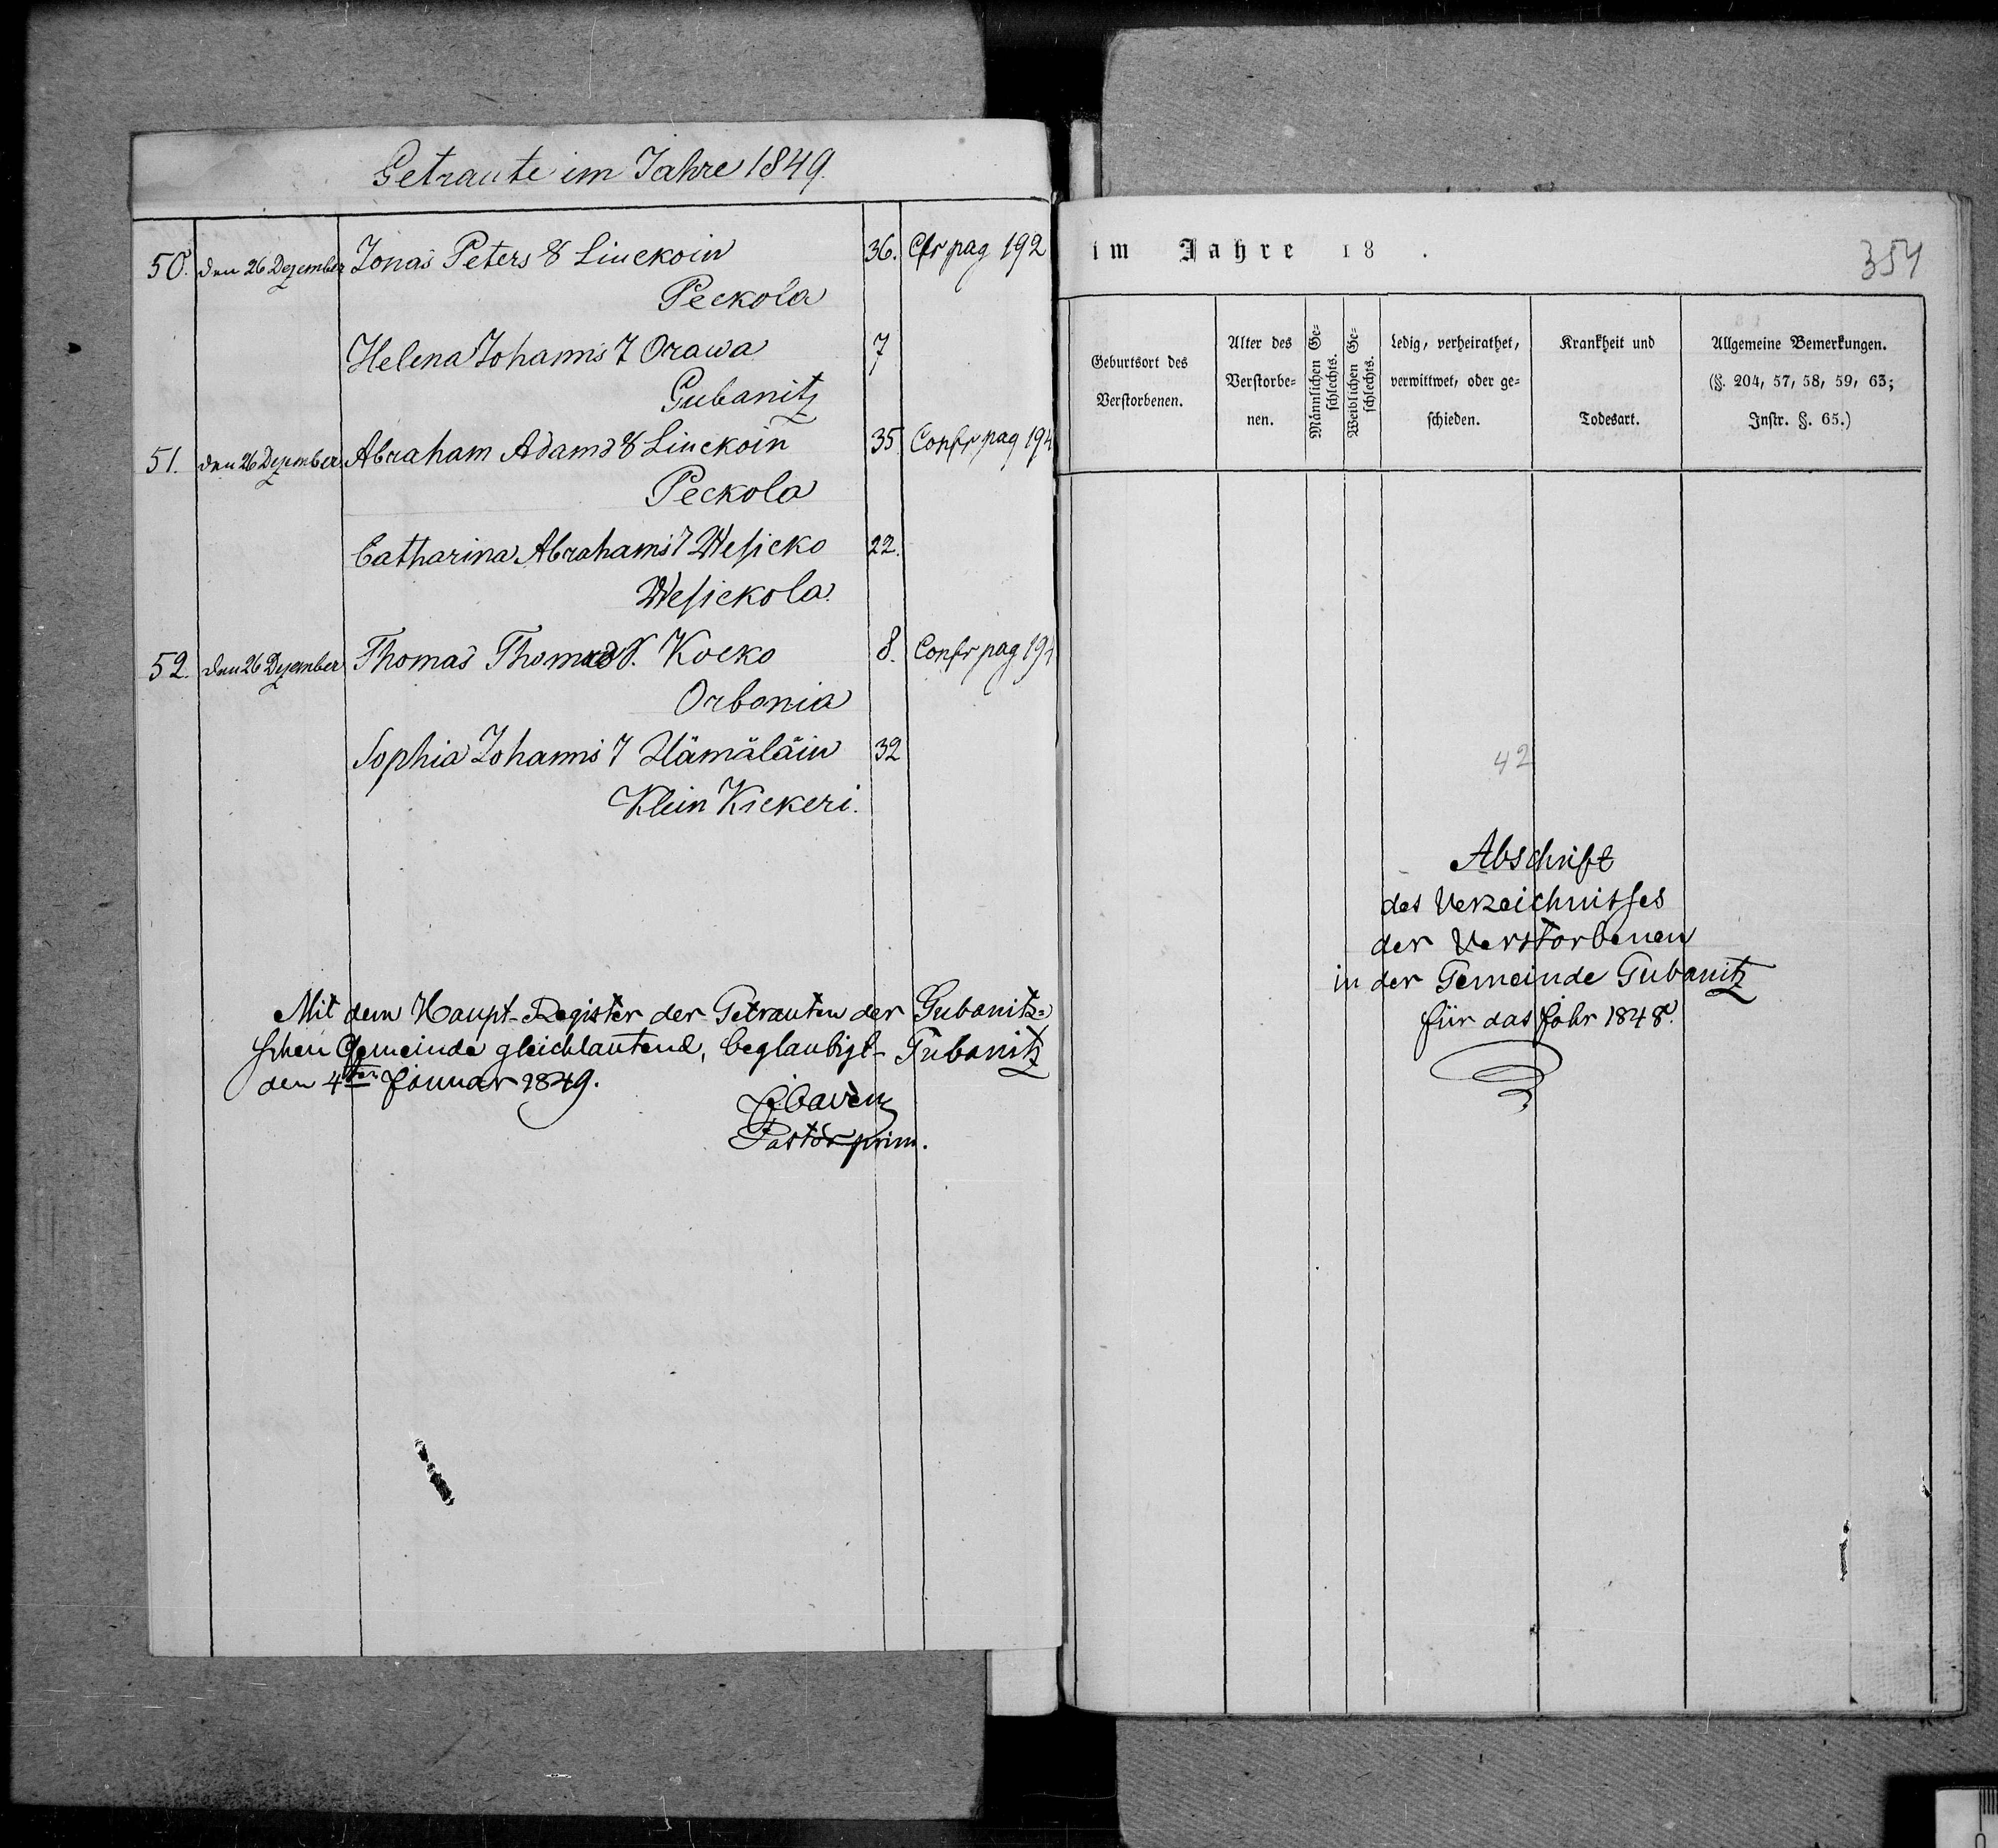 Getraute im Jahre 1849.
50. den 26 Dezember Jonas Peters S Liuckoin 36. Cfr pag 192
Peckola
Helena Johanns T Orawa 7
Gubanitz
51. den 26 Dezember Abraham Adams S Liuckoin 35 Confr pag 194
Peckola
Catharina Abrahams T Wesicko 22.
Wesickola.
52. den 26 Dezember Thomas Thomas S. Kocko 8. Confr pag 19
Orbonia
Sophia Johanns T Hämäläin 32
Klein Kickeri.
Mit dem Haupt-Register der Getrauten der Gubanitz-
schen Gemeinde gleichlautend, beglaubigt- Gubanitz
den 4ten Januar 1849.
Pastor prim.
im Jahre 18 .
354
Geburtsort des
Verstorbenen.
Alter des
Verstorbe-
nen.
Männlichen Ge-
schlechts.
Weiblichen Ge-
schlechts.
Ledig, verheirathet,
verwittwet, oder ge-
schieden.
Krankheit und
Todesart.
Allgemeine Bemerkungen.
(§. 204, 57, 58, 59, 63;
Instr. §. 65.)
42
Abschrift
des Verzeichnisses
der Verstorbenen
in der Gemeinde Gubanitz
für das Jahr 1848.